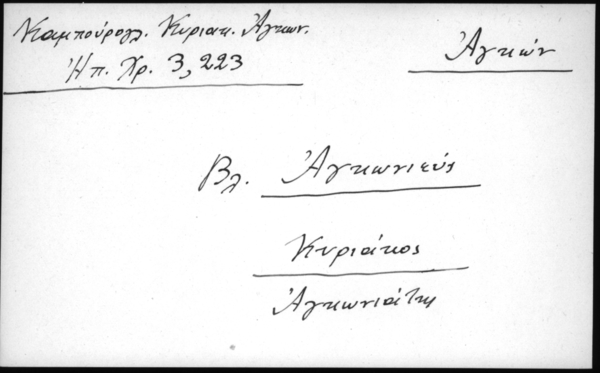 Καμπούρογλ. Κυριακ. Ἀγκων.
Ἠπ. Χρ. 3, 223
Ἀγκών
Βλ. Ἀγκωνιεύς
Κυριάκος
Ἀγκωνιάτης